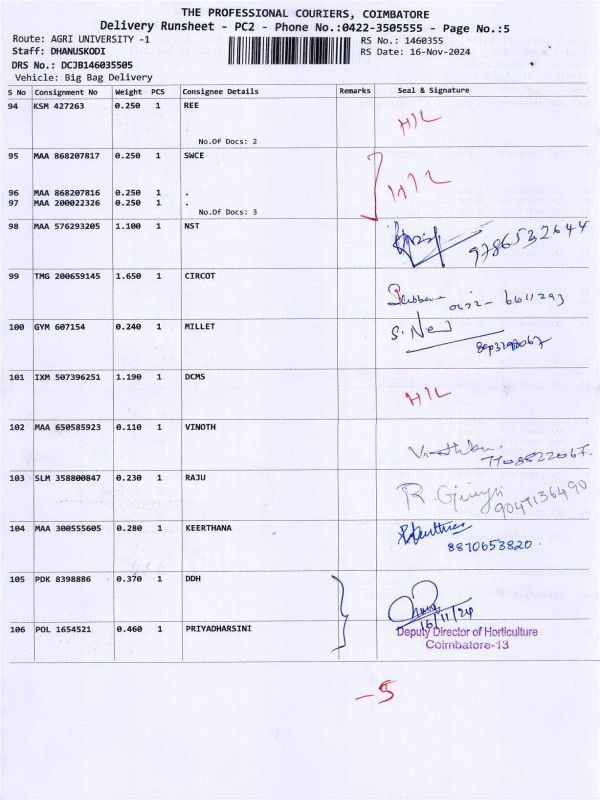 THE PROFESSIONAL COURIERS, COIMBATORE
Delivery Runsheet - PC2 - Phone No.:0422-3505555 - Page No.:5
Route: AGRI UNIVERSITY -1 RS No.: 1460355
Staff: DHANUSKODI RS Date: 16-Nov-2024
DRS No.: DCJB146035505
Vehicle: Big Bag Delivery
S No Consignment No Weight PCS Consignee Details Remarks Seal & Signature
94 KSM 427263 0.250 1 REE H/L
No.Of Docs: 2
95 MAA 868207817 0.250 1 SWCE
H/L
96 MAA 868207816 0.250 1 .
97 MAA 200022326 0.250 1 .
No.Of Docs: 3
98 MAA 576293205 1.100 1 NST
9786532644
99 TMG 200659145 1.650 1 CIRCOT
0422-6611293
100 GYM 607154 0.240 1 MILLET
101 IXM 507396251 1.190 1 DCMS
H/L
102 MAA 650585923 0.110 1 VINOTH
103 SLM 358800847 0.230 1 RAJU
9047136490
104 MAA 300555605 0.280 1 KEERTHANA
8870653820
105 PDK 8398886 0.370 1 DDH
16/11/24
106 POL 1654521 0.460 1 PRIYADHARSINI Deputy Director of Horticulture
Coimbatore-13
-5